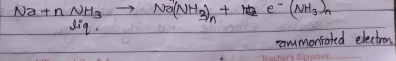 Na + n NH₃ → Na(NH₃)ₙ + e⁻ (NH₃)ₙ
liq.
ammoniated electron
Teacher's Signature